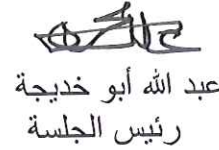 عبد الله أبو خديجة
رئيس الجلسة